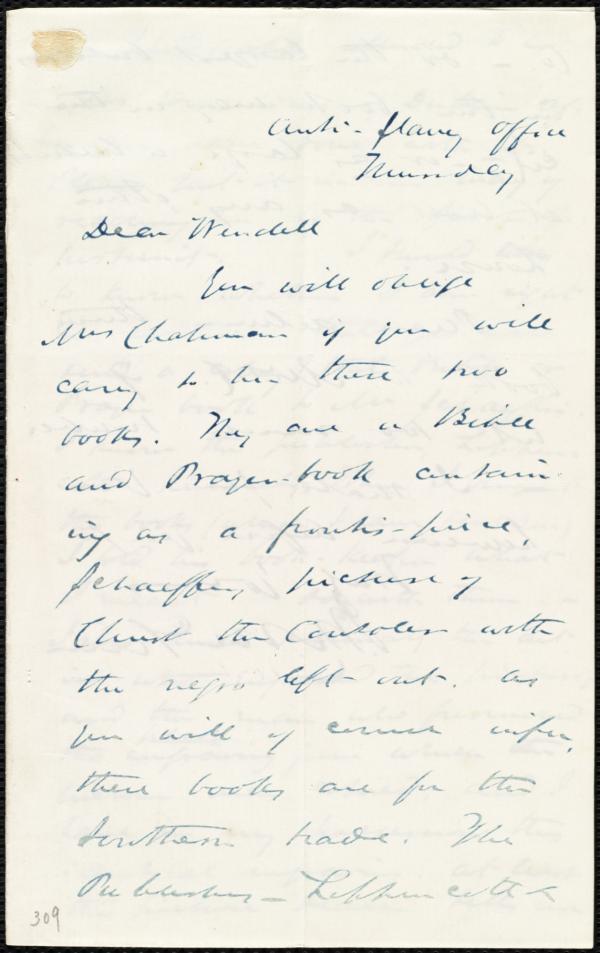 Anti-Slavery Office
Thursday
Dear Wendell
You will oblige
Mrs Chapman if you will
carry to her these two
books. They are a Bible
and Prayer-book contain-
ing as a frontis-piece,
Schaeffer's picture of
Christ the Consoler with
the negro left out. As
you will of course infer,
these books are for the
Southern trade. The
Publishers - Lippincott &
309